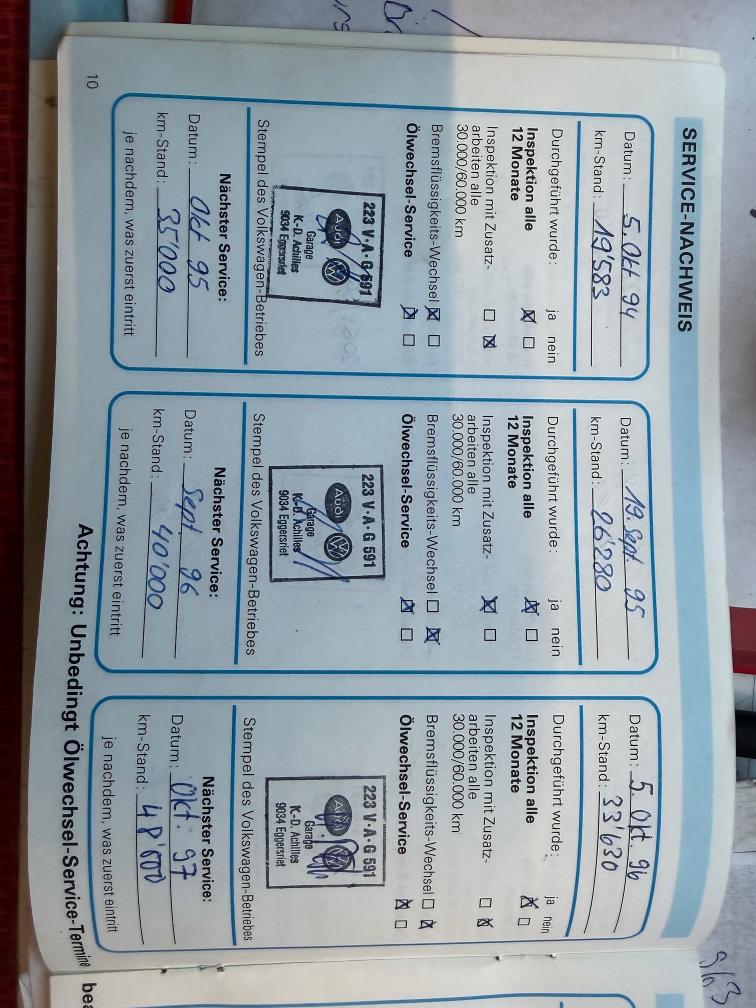 SERVICE-NACHWEIS
Datum: 5. Okt 94
km-Stand: 19'583
Durchgeführt wurde: ja nein
Inspektion alle
12 Monate
Inspektion mit Zusatz-
arbeiten alle
30.000/60.000 km
Bremsflüssigkeits-Wechsel
Ölwechsel-Service
223 V·A·G 591
Audi
Garage
K.-D. Achilles
9034 Eggersriet
Stempel des Volkswagen-Betriebes
Nächster Service:
Datum: Okt 95
km-Stand: 35'000
je nachdem, was zuerst eintritt
Datum: 19. Sept. 95
km-Stand: 26'280
Durchgeführt wurde: ja nein
Inspektion alle
12 Monate
Inspektion mit Zusatz-
arbeiten alle
30.000/60.000 km
Bremsflüssigkeits-Wechsel
Ölwechsel-Service
223 V·A·G 591
Audi
Garage
K.-D. Achilles
9034 Eggersriet
Stempel des Volkswagen-Betriebes
Nächster Service:
Datum: Sept. 96
km-Stand: 40'000
je nachdem, was zuerst eintritt
Datum: 5. Okt. 96
km-Stand: 33'630
Durchgeführt wurde: ja nein
Inspektion alle
12 Monate
Inspektion mit Zusatz-
arbeiten alle
30.000/60.000 km
Bremsflüssigkeits-Wechsel
Ölwechsel-Service
223 V·A·G 591
Audi
Garage
K.-D. Achilles
9034 Eggersriet
Stempel des Volkswagen-Betriebes
Nächster Service:
Datum: Okt. 97
km-Stand: 48'000
je nachdem, was zuerst eintritt
10
Achtung: Unbedingt Ölwechsel-Service-Termine